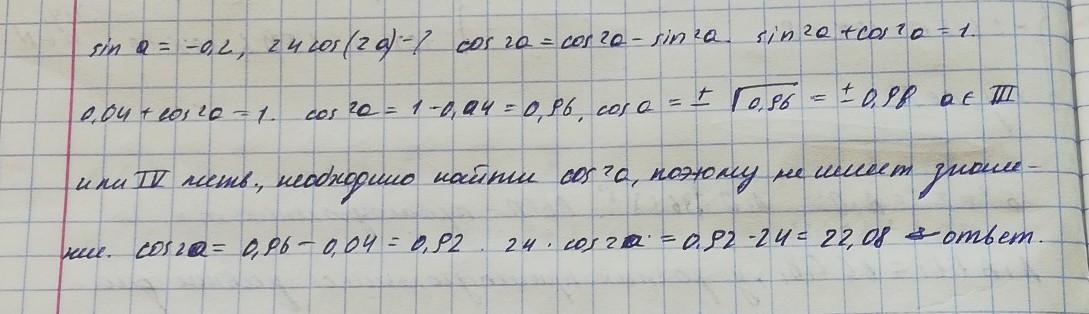 sin a = -0,2, 24 cos(2a) - ? cos 2a = cos²a - sin²a. sin²a + cos²a = 1.
0,04 + cos²a = 1. cos²a = 1 - 0,04 = 0,96, cos a = ± √0,96 = ± 0,98 a ∈ III
или IV четв., необходимо найти cos²a, поэтому не имеет значе-
ние. cos2a = 0,96 - 0,04 = 0,92. 24 · cos2a = 0,92 · 24 = 22,08 ответ.